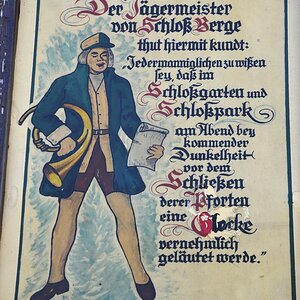 Der Jägermeister
von Schloß Berge
thut hiermit kundt:
Jedermanniglichen zu wißen
sey, daß im
Schloßgarten und
Schloßpark
am Abend bey
kommender
Dunkelheit
vor dem
Schließen
derer Pforten
eine Glocke
vernehmlich
geläutet werde."